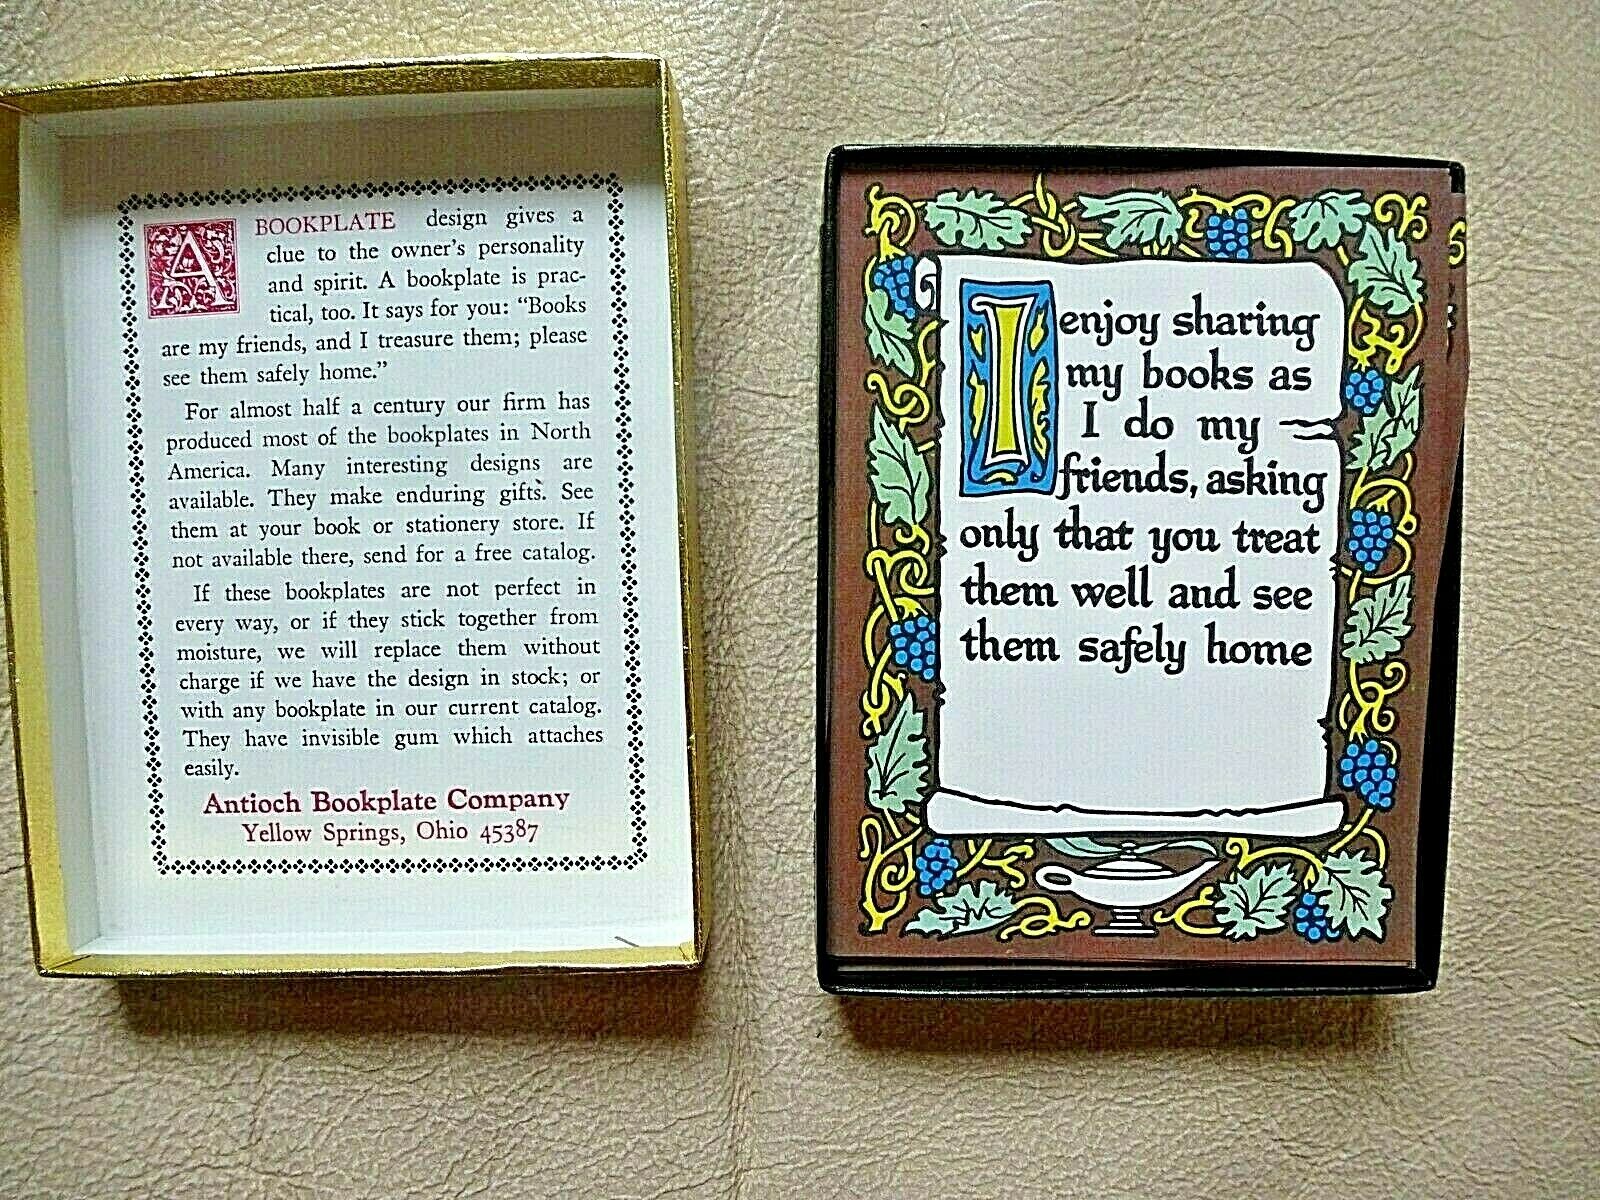 A BOOKPLATE design gives a
clue to the owner's personality
and spirit. A bookplate is prac-
tical, too. It says for you: “Books
are my friends, and I treasure them; please
see them safely home.”
For almost half a century our firm has
produced most of the bookplates in North
America. Many interesting designs are
available. They make enduring gifts. See
them at your book or stationery store. If
not available there, send for a free catalog.
If these bookplates are not perfect in
every way, or if they stick together from
moisture, we will replace them without
charge if we have the design in stock; or
with any bookplate in our current catalog.
They have invisible gum which attaches
easily.
Antioch Bookplate Company
Yellow Springs, Ohio 45387
I enjoy sharing
my books as
I do my
friends, asking
only that you treat
them well and see
them safely home